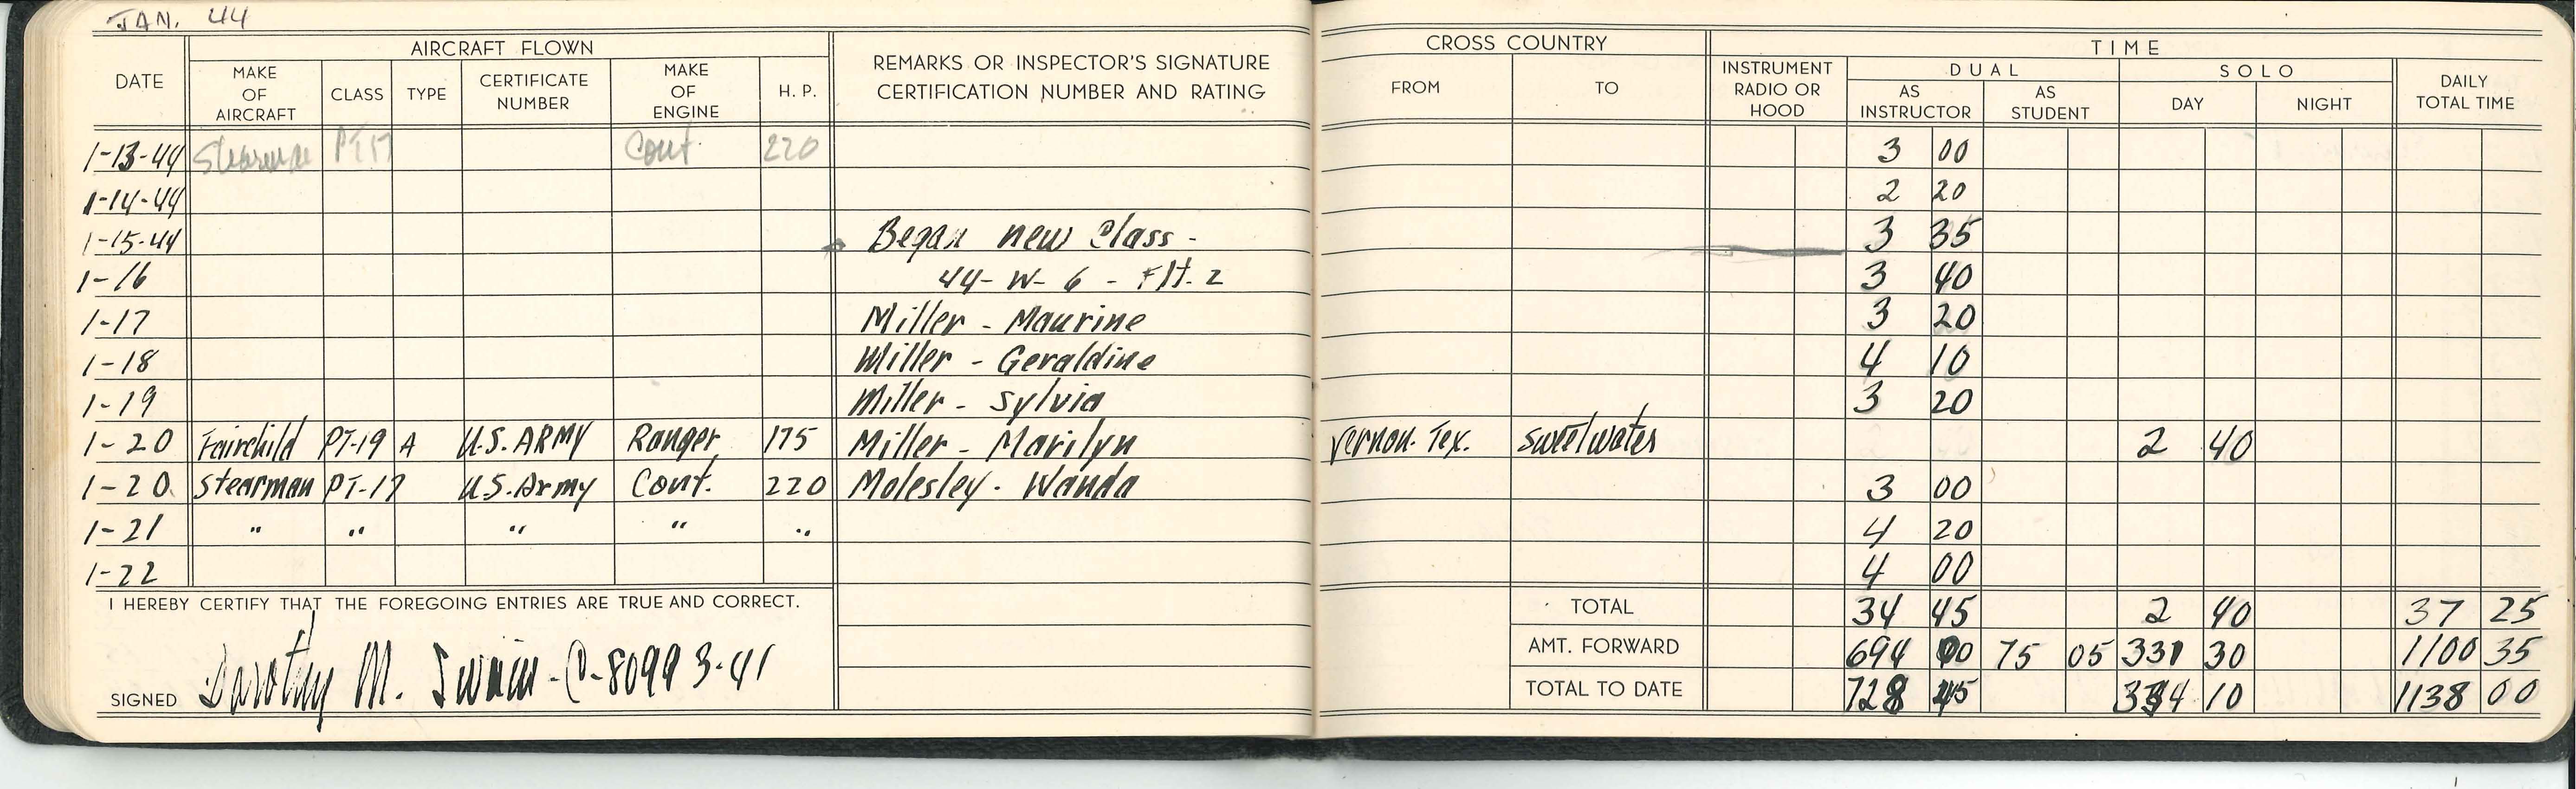 JAN. 44
DATE AIRCRAFT FLOWN REMARKS OR INSPECTOR'S SIGNATURE CERTIFICATION NUMBER AND RATING CROSS COUNTRY TIME
MAKE OF AIRCRAFT CLASS TYPE CERTIFICATE NUMBER MAKE OF ENGINE H. P. FROM TO INSTRUMENT RADIO OR HOOD DUAL SOLO DAILY TOTAL TIME
AS INSTRUCTOR AS STUDENT DAY NIGHT
1-13-44 Stearman PT17 Cont. 220 3 00
1-14-44 2 20
1-15-44 Began new Class - 3 35
1-16 44-W-6 - Flt. 2 3 40
1-17 Miller - Maurine 3 20
1-18 Miller - Geraldine 4 10
1-19 Miller - Sylvia 3 20
1-20 Fairchild PT-19 A U.S. ARMY Ranger 175 Miller - Marilyn Vernon. Tex. Sweetwater 2 40
1-20 Stearman PT-17 U.S. Army Cont. 220 Molesley - Wanda 3 00
1-21 " " " " " 4 20
1-22 4 00
I HEREBY CERTIFY THAT THE FOREGOING ENTRIES ARE TRUE AND CORRECT. TOTAL 34 45 2 40 37 25
AMT. FORWARD 694 00 75 05 331 30 1100 35
SIGNED Dorothy M. Swain - C-80993-41 TOTAL TO DATE 728 45 334 10 1138 00